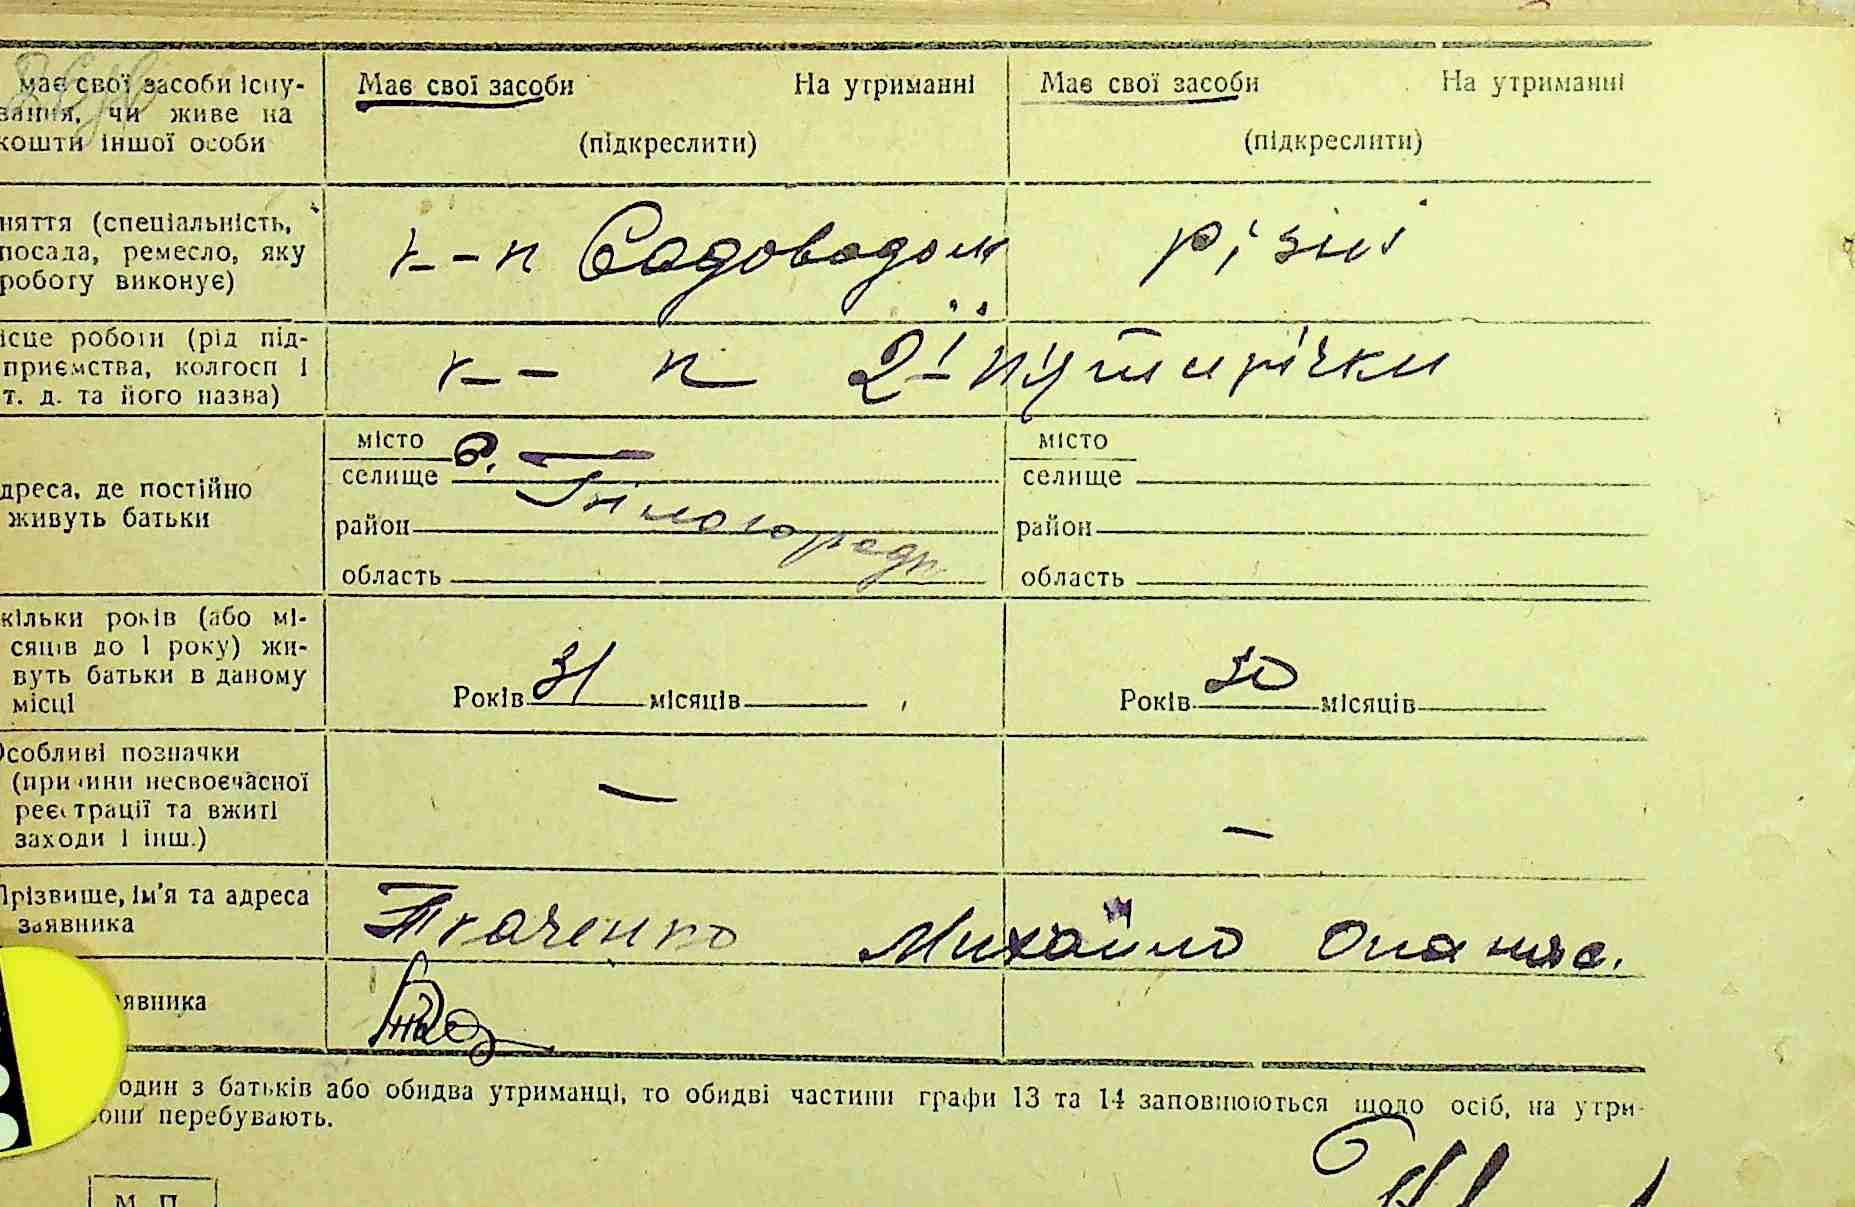 має свої засоби існу-
вання, чи живе на
кошти іншої особи
Має свої засоби На утриманні
(підкреслити)
Має свої засоби На утриманні
(підкреслити)
няття (спеціальність,
посада, ремесло, яку
роботу виконує)
к-п Садоводом
різні
ісце роботи (рід під-
приємства, колгосп і
т. д. та його назва)
к-п 2ї п'ятирічки
дреса, де постійно
живуть батьки
місто
селище с.
район
область
місто
селище
район
область
кільки років (або мі-
сяців до 1 року) жи-
вуть батьки в даному
місці
Років 31 місяців
Років 30 місяців
Особливі позначки
(причини несвоєчасної
реєстрації та вжиті
заходи і інш.)
—
—
Прізвище, ім'я та адреса
заявника
Ткаченко Михайло Опанас.
явника
один з батьків або обидва утриманці, то обидві частини графи 13 та 14 заповнюються щодо осіб, на утри-
вони перебувають.
М. П.